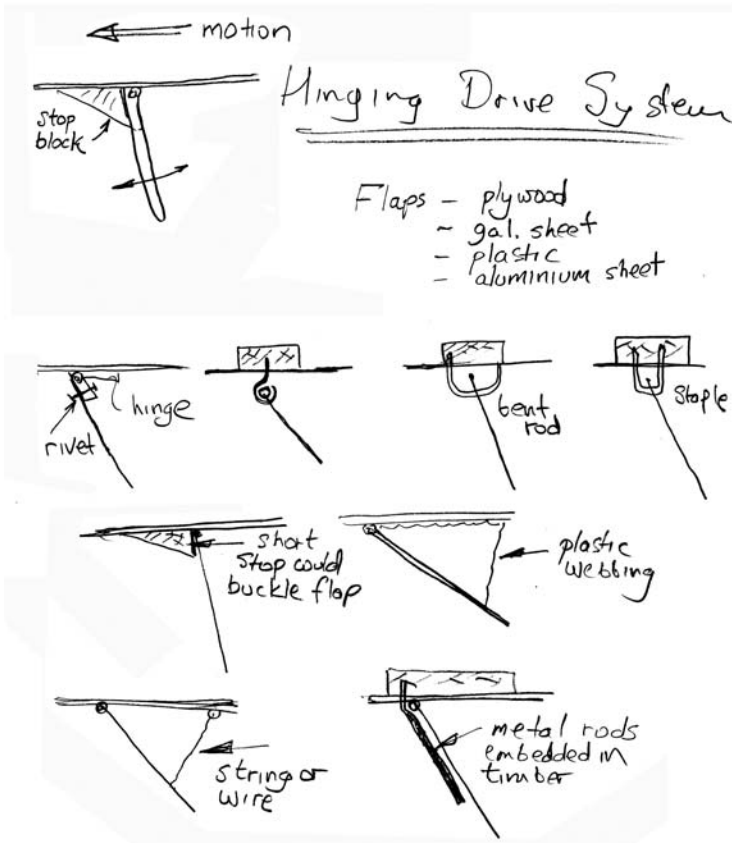 motion
Hinging Drive System
stop
block
Flaps - plywood
- gal. sheet
- plastic
- aluminium sheet
hinge
rivet
bent
rod
Staple
short
Stop could
buckle flap
plastic
webbing
string or
wire
metal rods
embedded in
timber